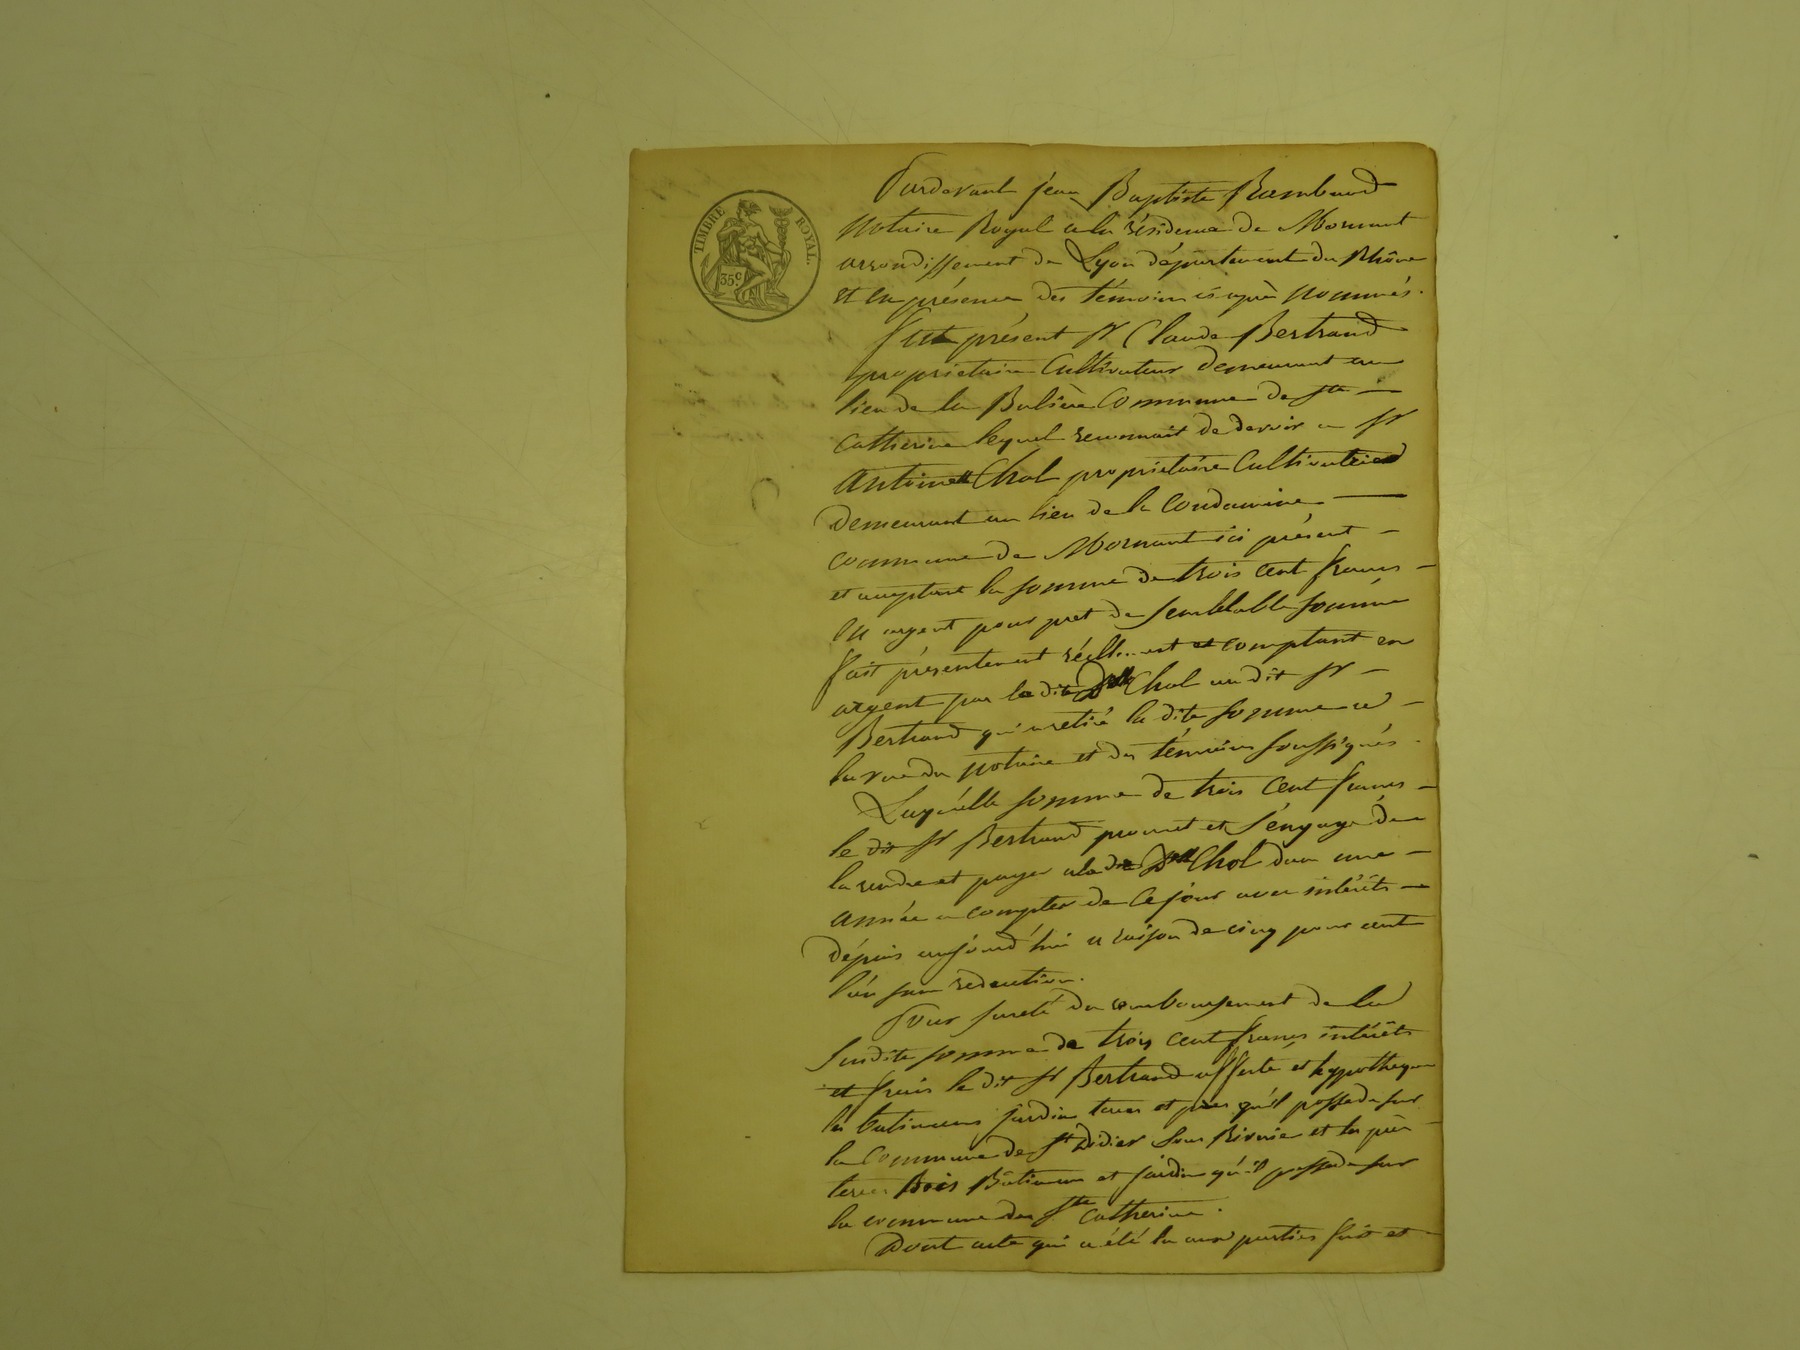 TIMBRE ROYAL.
35c.
Pardevant jean Baptiste Rambaud
Notaire Royal a la résidence de Mornant
arrondissement de Lyon département du Rhône
et en présence des témoins ci après nommés.
fut présent Sr Claude Bertrand
propriétaire Cultivateur demeurant au
lieu de la Commune de Ste
Catherine lequel reconnait de devoir a Sr
Antoinette Chol propriétaire Cultivatrice
demeurant au lieu de la Condamine
commune de Mornant ici présent
et acceptant la somme de trois cent francs
en argent pour pret de semblable somme
fait présentement réellement et comptant en
argent par la dite Dlle Chol au dit Sr
Bertrand qui a retiré la dite somme a
la vue du notaire et des témoins soussignés.
Laquelle somme de trois cent francs
le dit Sr Bertrand promet et s'engage de
la rendre et payer a la dte Dlle Chol dans une
année a compter de ce jour avec intérêts
dépuis aujourd'hui a raison de cinq pour cent
l'an sans redaction.
Pour sureté du remboursement de la
susdite somme de trois cent francs intérêts
et frais le dit Sr Bertrand affecte et hypotheque
les batimens jardin terres et prés qu'il possede sur
la Commune de St Didier sous Riverie et les prés
terres Bois Bâtimens et jardin qu'il possede sur
la commune de Ste Catherine.
Dont acte qui a été lu aux parties fait et